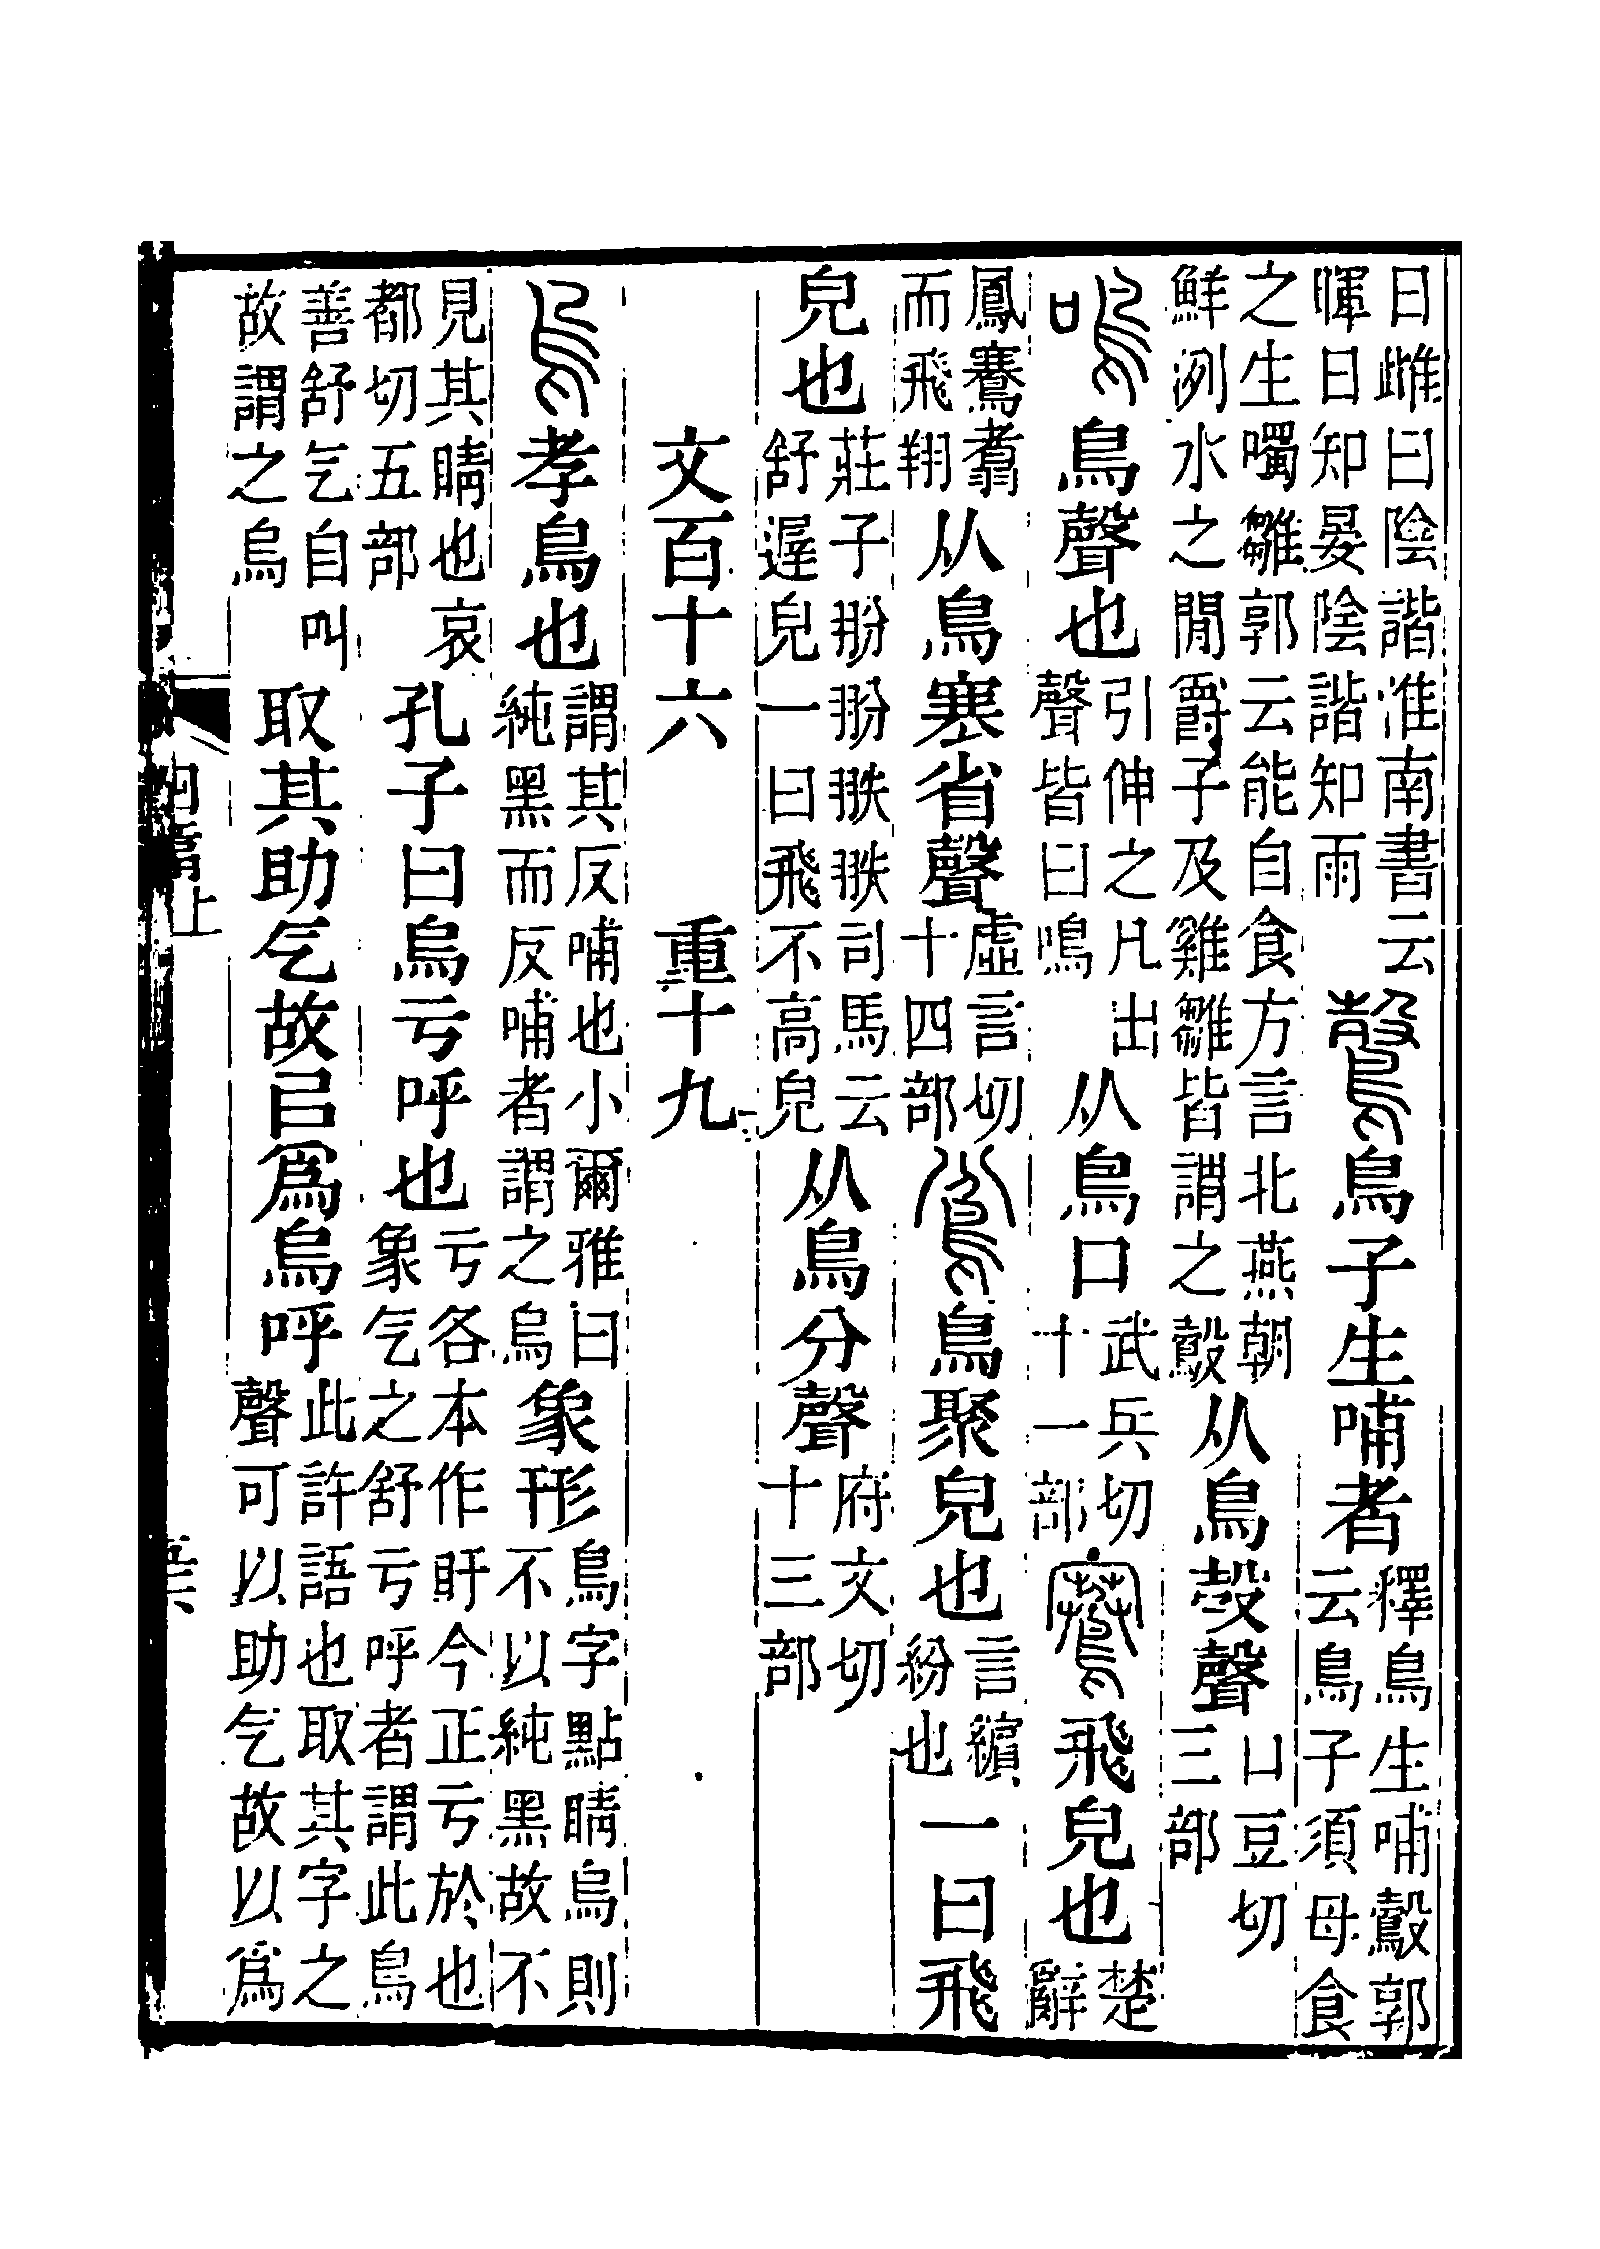 日雌曰陰諧淮南書云暉日知晏陰諧知雨鷇鳥子生哺者釋鳥生哺鷇郭云鳥子須母食
之生噣雛郭云能自食方言北燕朝鮮洌水之閒爵子及雞雛皆謂之鷇从鳥𣪊聲口豆切三部
鳴鳥聲也引伸之凡出聲皆曰鳴从鳥口武兵切十一部鶱飛皃也楚辭
鳳鶱翥而飛翔从鳥塞省聲虛言切十四部鳻鳥聚皃也言繽紛也一曰飛
皃也莊子翂翂翐翐司馬云舒遲皃一曰飛不高皃从鳥分聲府文切十三部
文百十六　重十九
烏孝鳥也謂其反哺也小爾雅曰純黑而反哺者謂之烏象形鳥字點睛烏則不以純黑故不
見其睛也哀都切五部孔子曰烏亏呼也亏各本作盱今正亏於也象气之舒亏呼者謂此鳥
善舒气自叫故謂之烏取其助气故㠯爲烏呼此許語也取其字之聲可以助气故以爲
四篇上